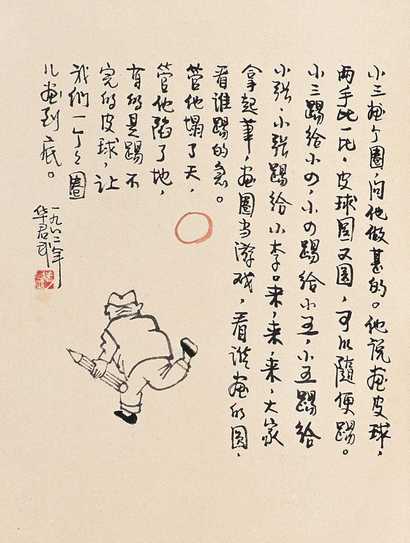 小三画个圈，问他做甚的。他说画皮球，
两手比一比，皮球圆又圆，可以隨便踢。
小三踢给小四，小四踢给小五，小五踢给
小张，小张踢给小李。来，来，来，大家
拿起筆，画圈当游戏，看谁画的圆，
看谁踢的急。
管他塌了天，
管他陷了地，
有的是踢不
完的皮球，让
我们一个々圈
儿画到底。
一九八二年
华君武